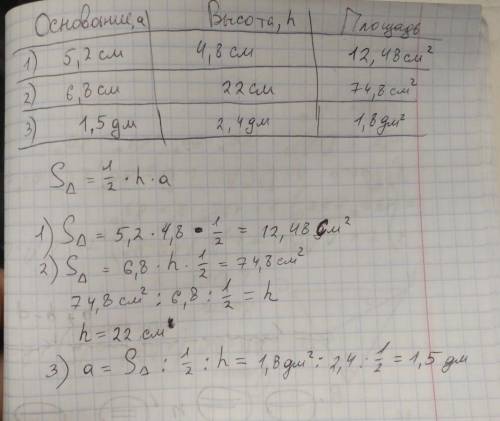 Основание, a Высота, h Площадь
1) 5,2 см 4,8 см 12,48 см²
2) 6,8 см 22 см 74,8 см²
3) 1,5 дм 2,4 дм 1,8 дм²
S△ = 1/2 · h · a
1) S△ = 5,2 · 4,8 · 1/2 = 12,48 см²
2) S△ = 6,8 · h · 1/2 = 74,8 см²
74,8 см² : 6,8 : 1/2 = h
h = 22 см
3) a = S△ : 1/2 : h = 1,8 дм² : 2,4 : 1/2 = 1,5 дм